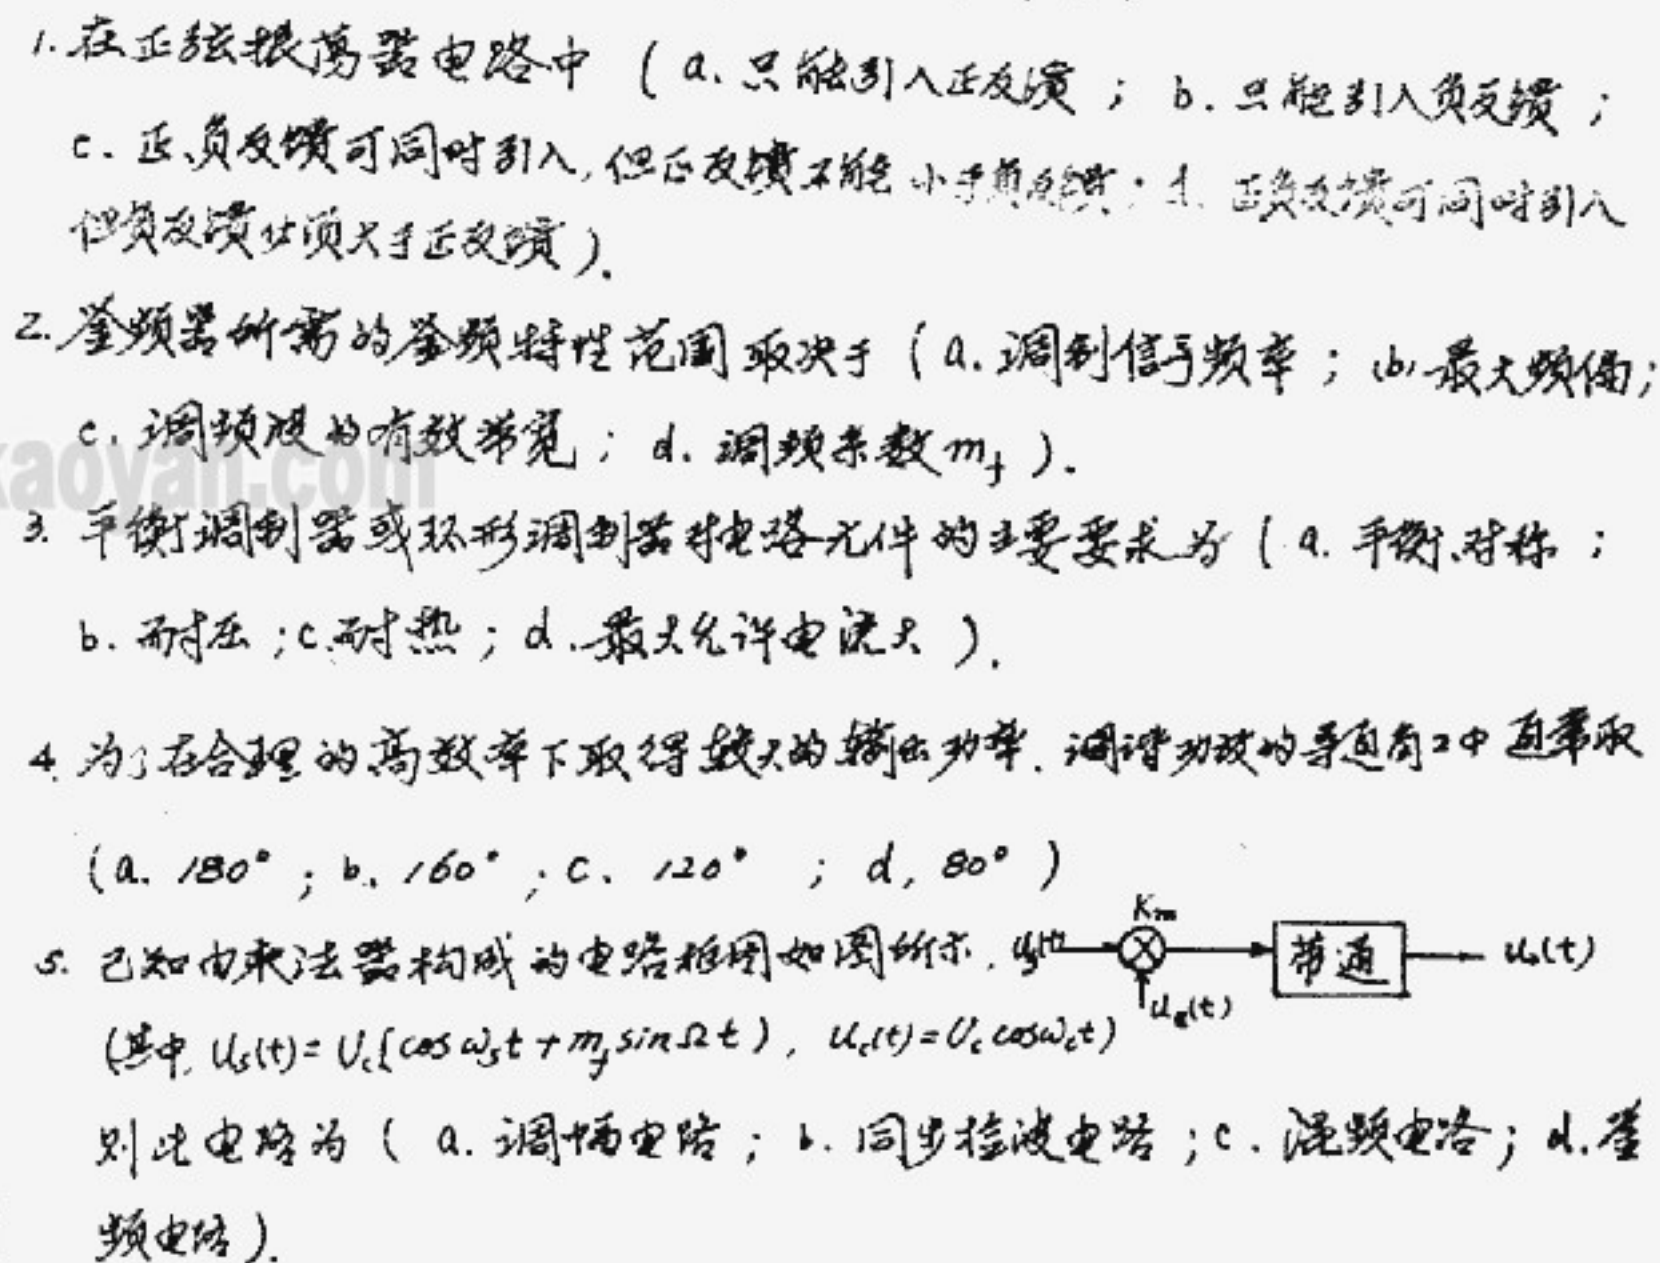 1. 在正弦振荡器电路中 (a. 只能引入正反馈 ; b. 只能引入负反馈 ;
c. 正、负反馈可同时引入, 但正反馈不能小于负反馈; d. 正负反馈可同时引入
但负反馈必须大于正反馈).
2. 鉴频器所需的鉴频特性范围取决于 (a. 调制信号频率 ; (b) 最大频偏;
c. 调频波的有效带宽 ; d. 调频系数 m_f ).
kaoyan.com
3. 平衡调制器或环形调制器对电路元件的主要要求为 (a. 平衡、对称 ;
b. 耐压 ; c. 耐热 ; d. 最大允许电流大 ).
4. 为了在合理的高效率下取得较大的输出功率. 调谐功放的导通角2Φ通常取
(a. 180° ; b. 160° ; c. 120° ; d, 80° )
5. 已知由乘法器构成的电路框图如图所示. u_s(t) K_m 带通 u_o(t)
u_c(t)
(其中, u_s(t) = U_c(cosω_st + m_f sinΩt), u_c(t) = U_c cosω_ct)
则此电路为 ( a. 调幅电路 ; b. 同步检波电路 ; c. 混频电路 ; d. 鉴
频电路 ).